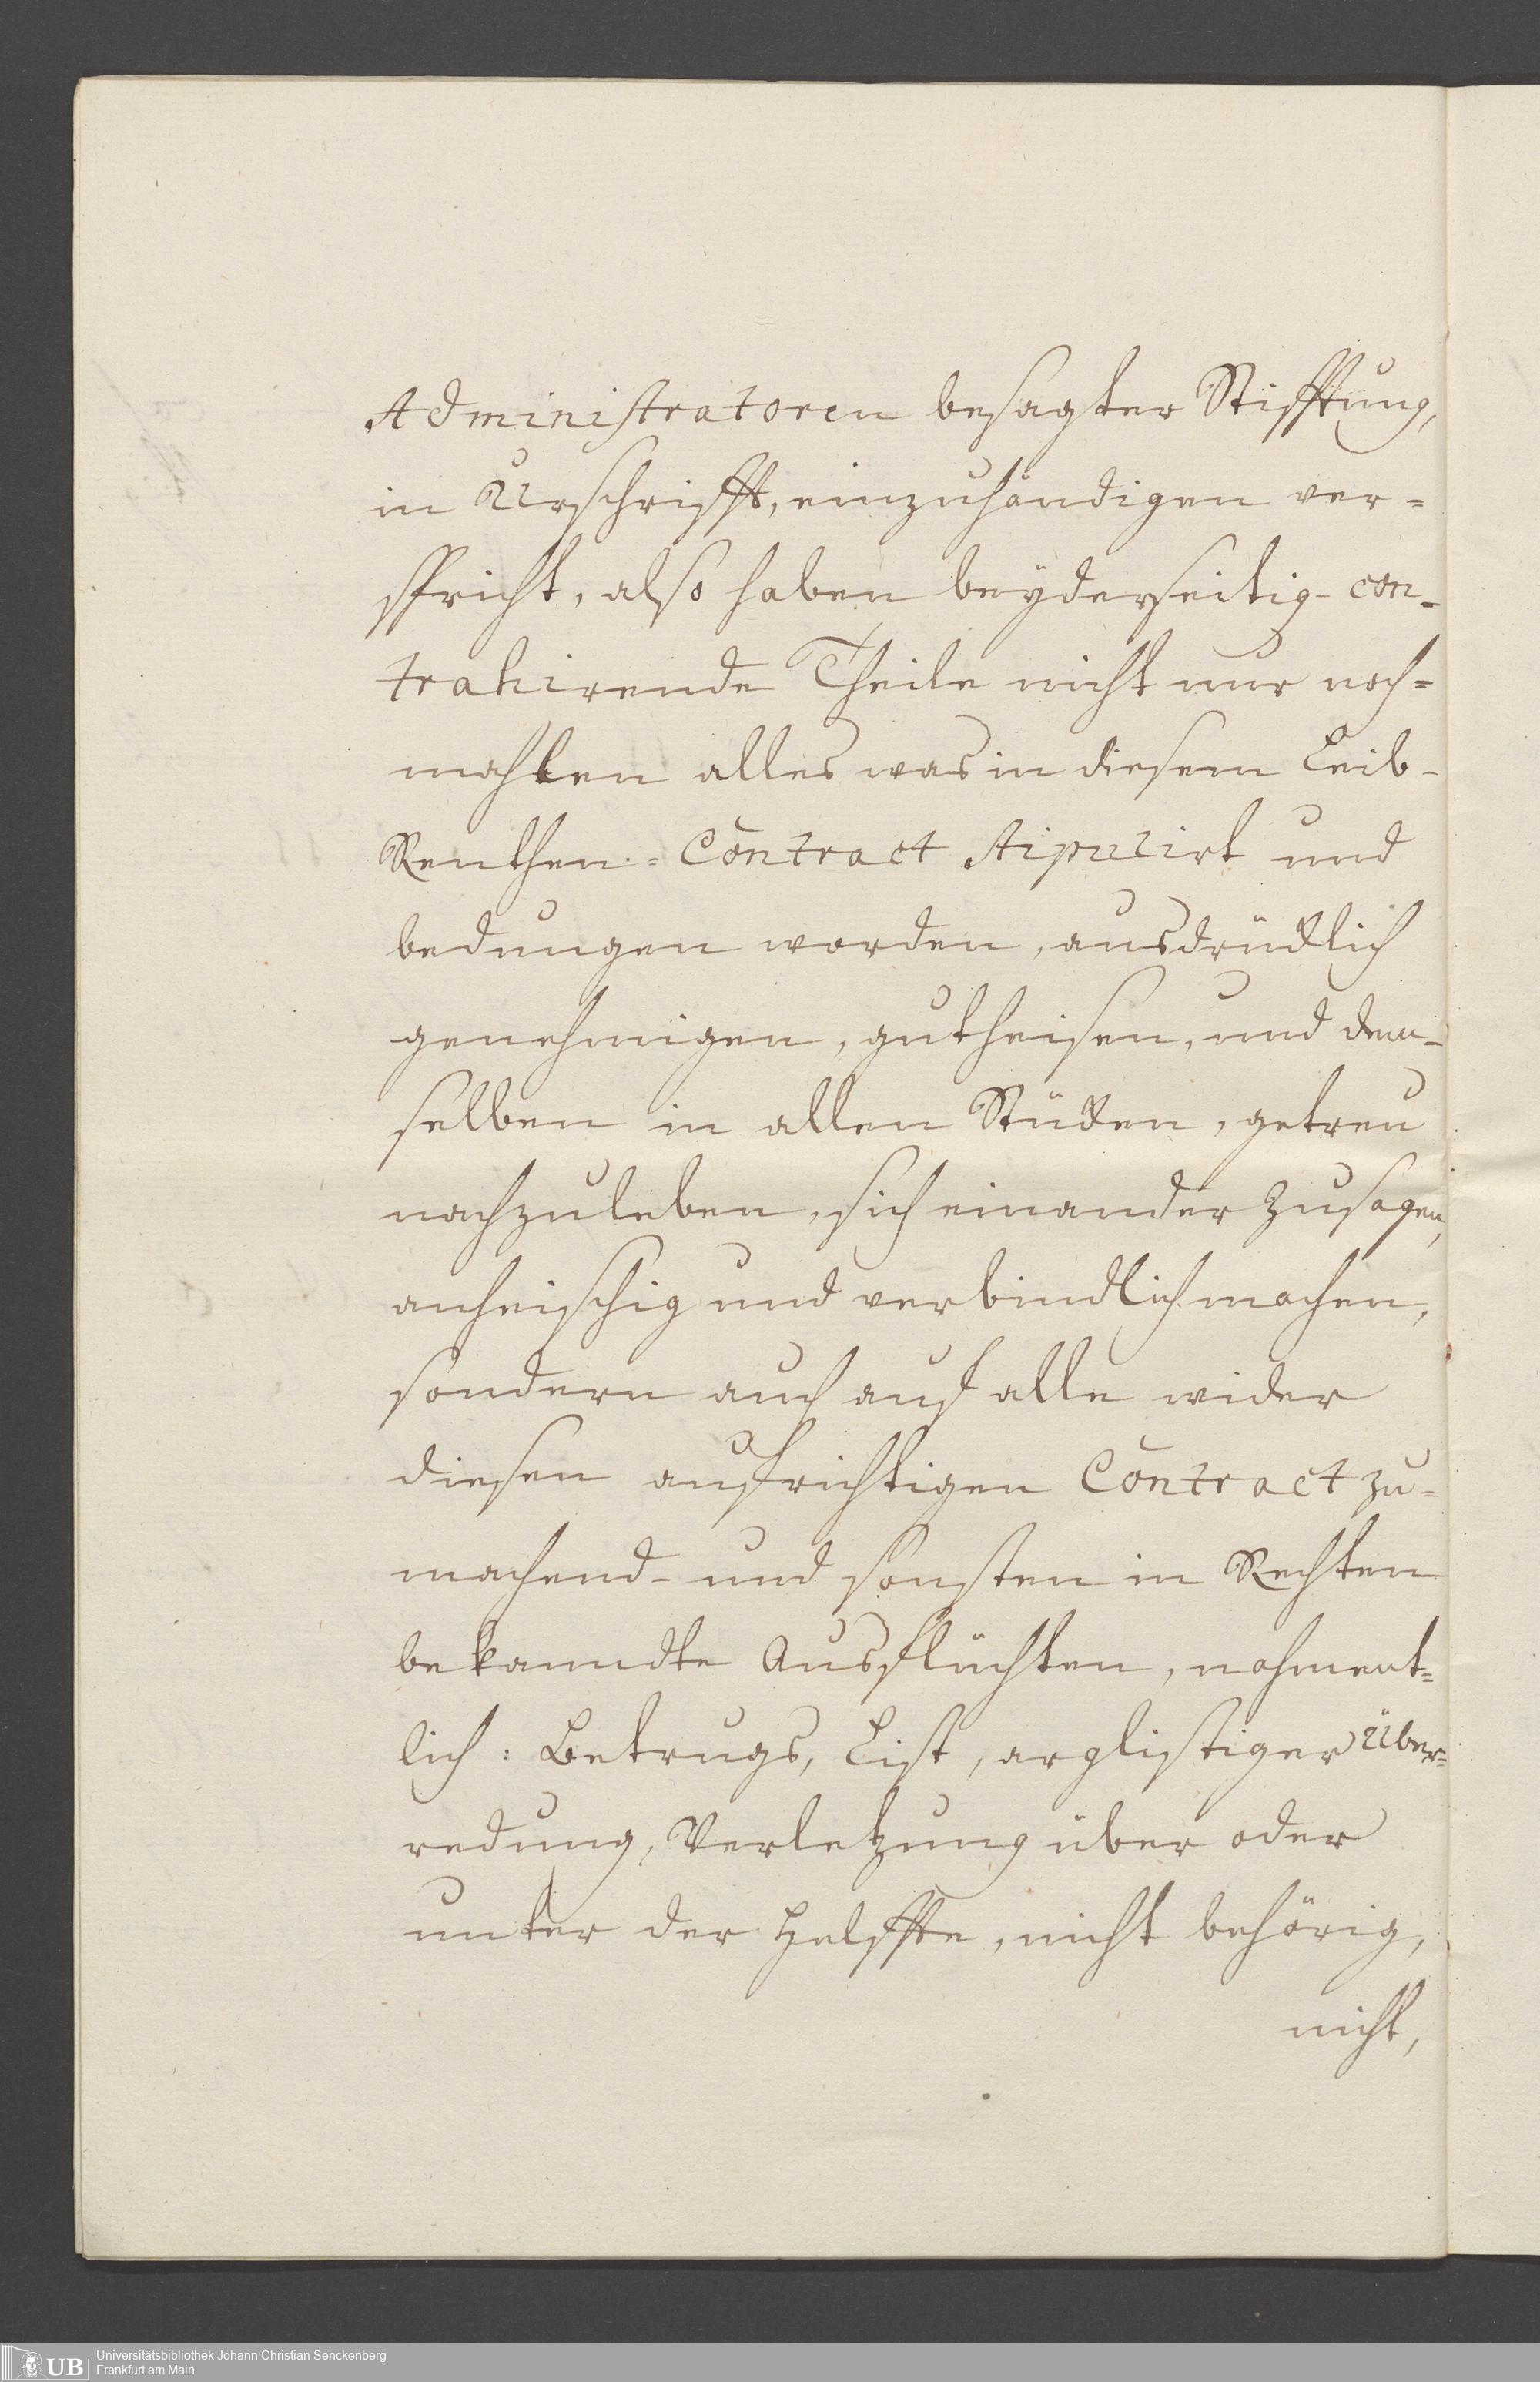 Administratoren besagter Stifftung,
in Urschrifft, einzuhändigen ver=
spricht, also haben beyderseitig- con-
trahirende Theile nicht nur noch=
mahlen alles was in diesem Leib-
Renthen=Contract stipulirt und
bedungen worden, ausdrücklich
genehmigen, gutheisen, und dem-
selben in allen Stücken, getreu
nachzuleben, sich einander zusagen,
anheischig und verbindlich machen,
sondern auch auf alle wider
diesen aufrichtigen Contract zu=
machend- und sonsten in Rechten
bekanndte Ausflüchten, nahment=
lich: Betrugs, List, arglistiger Über=
redung, Verletzung über oder
unter der Helffte, nicht behörig,
nicht,
UB Universitätsbibliothek Johann Christian Senckenberg
Frankfurt am Main